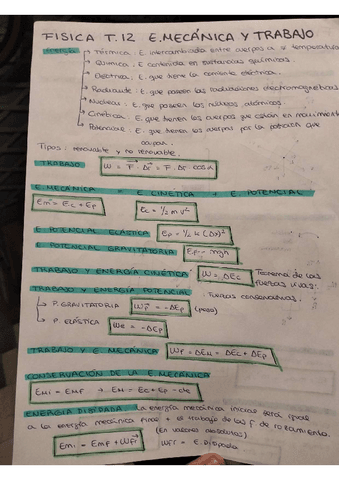 FISICA T.12 E.MECÁNICA Y TRABAJO
Energía → Térmica: E. intercambiada entre cuerpos a ≠ temperatura
→ Química: E contenida en sustancias químicas.
→ Eléctrica: E. que tiene la corriente eléctrica.
→ Radiante: E. que poseen las radiaciones electromagnéticas
→ Nuclear: E. que poseen los núcleos atómicos.
→ Cinética: E. que tienen los cuerpos que están en movimiento
→ Potencial: E. que tienen los cuerpos por la posición que
ocupan.
Tipos: renovable y no renovable.
TRABAJO W = F · Δr = F · Δr · cos α
E.MECÁNICA = E CINÉTICA + E. POTENCIAL
Em = Ec + Ep Ec = 1/2 m v²
E POTENCIAL ELÁSTICA Ep = 1/2 K (Δx)²
E POTENCIAL GRAVITATORIA Ep = mgh
TRABAJO Y ENERGÍA CINÉTICA W = ΔEc Teorema de las
fuerzas vivas.
TRABAJO Y ENERGÍA POTENCIAL Fuerzas conservativas.
→ P. GRAVITATORIA = -ΔEp (peso)
→ P. ELÁSTICA We = -ΔEp
TRABAJO Y E. MECÁNICA WF = ΔEm = ΔEc + ΔEp
CONSERVACIÓN DE LA E.MECÁNICA
Emi = Emf → Em = Ec + Ep = cte
ENERGÍA DISIPADA La energía mecánica inicial será igual
a la energía mecánica final + el trabajo de las F de rozamiento.
(En valores absolutos)
Emi = Emf + WFr WFr = E. Disipada